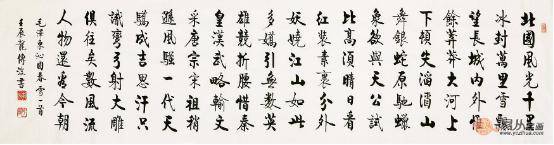 北國風光千里
冰封萬里雪飄
望長城內外惟
餘莽莽大河上
下頓失滔滔山
舞銀蛇原馳蠟
象欲與天公試
比高須晴日看
紅裝素裹分外
妖嬈江山如此
多嬌引無數英
雄競折腰惜秦
皇漢武略輸文
采唐宗宋祖稍
遜風騷一代天
驕成吉思汗只
識彎弓射大雕
俱往矣數風流
人物還看今朝
毛澤東沁園春雪一首
壬辰龍書